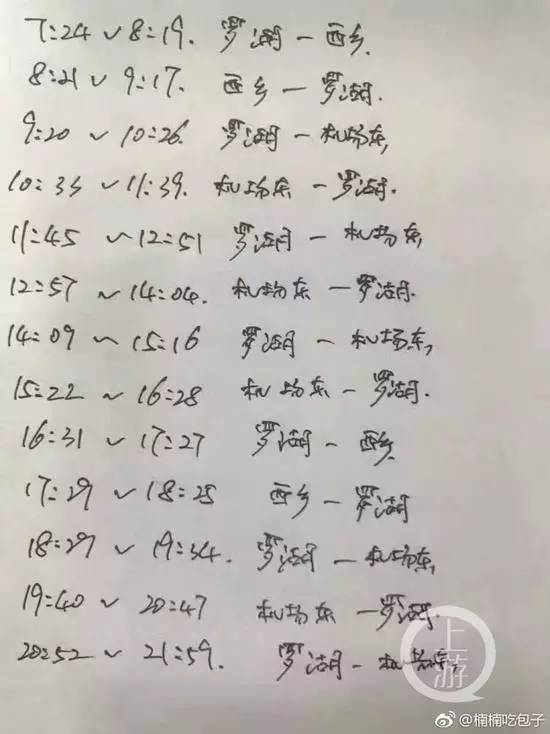 7:24～8:19. 罗湖－西乡.
8:21～9:17. 西乡－罗湖.
9:20～10:26. 罗湖－机场东,
10:33～11:39. 机场东－罗湖.
11:45～12:51 罗湖－机场东,
12:57～14:04. 机场东－罗湖.
14:09～15:16 罗湖－机场东,
15:22～16:28 机场东－罗湖.
16:31～17:27 罗湖－西乡
17:29～18:25 西乡－罗湖
18:29～19:34. 罗湖－机场东,
19:40～20:47 机场东－罗湖.
20:52～21:59. 罗湖－机场东,
上游
@楠楠吃包子